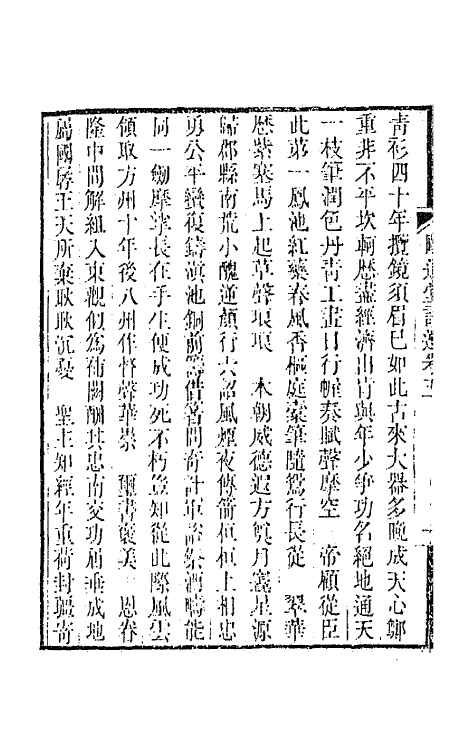 青衫四十年攬鏡須眉已如此古來大器多晚成天心鄭
重非不平坎軻歷盡經濟出肯與年少爭功名絕地通天
一枝筆潤色丹青工畫日行幄奏賦聲摩空 帝顧從臣
此第一鳳池紅藥春風香樞庭簪筆隨鴛行長從 翠華
歷紫塞馬上起草聲琅琅 本朝威德遐方賓月 星源
歸郡縣南荒小醜逆顏行六詔風煙夜傳箭桓桓上相忠
勇公平蠻復鑄滇池銅前籌借箸問奇計軍諮祭酒疇能
同一劍摩挲長在手生便成功死不朽豈知從此際風雲
領取方州十年後八州作督聲華崇 璽書褒美 恩眷
隆中間解組入東觀似為補闕酬其忠南交功屆垂成地
屬國辱王天所棄耿耿沉憂 聖主知經年重荷封疆寄